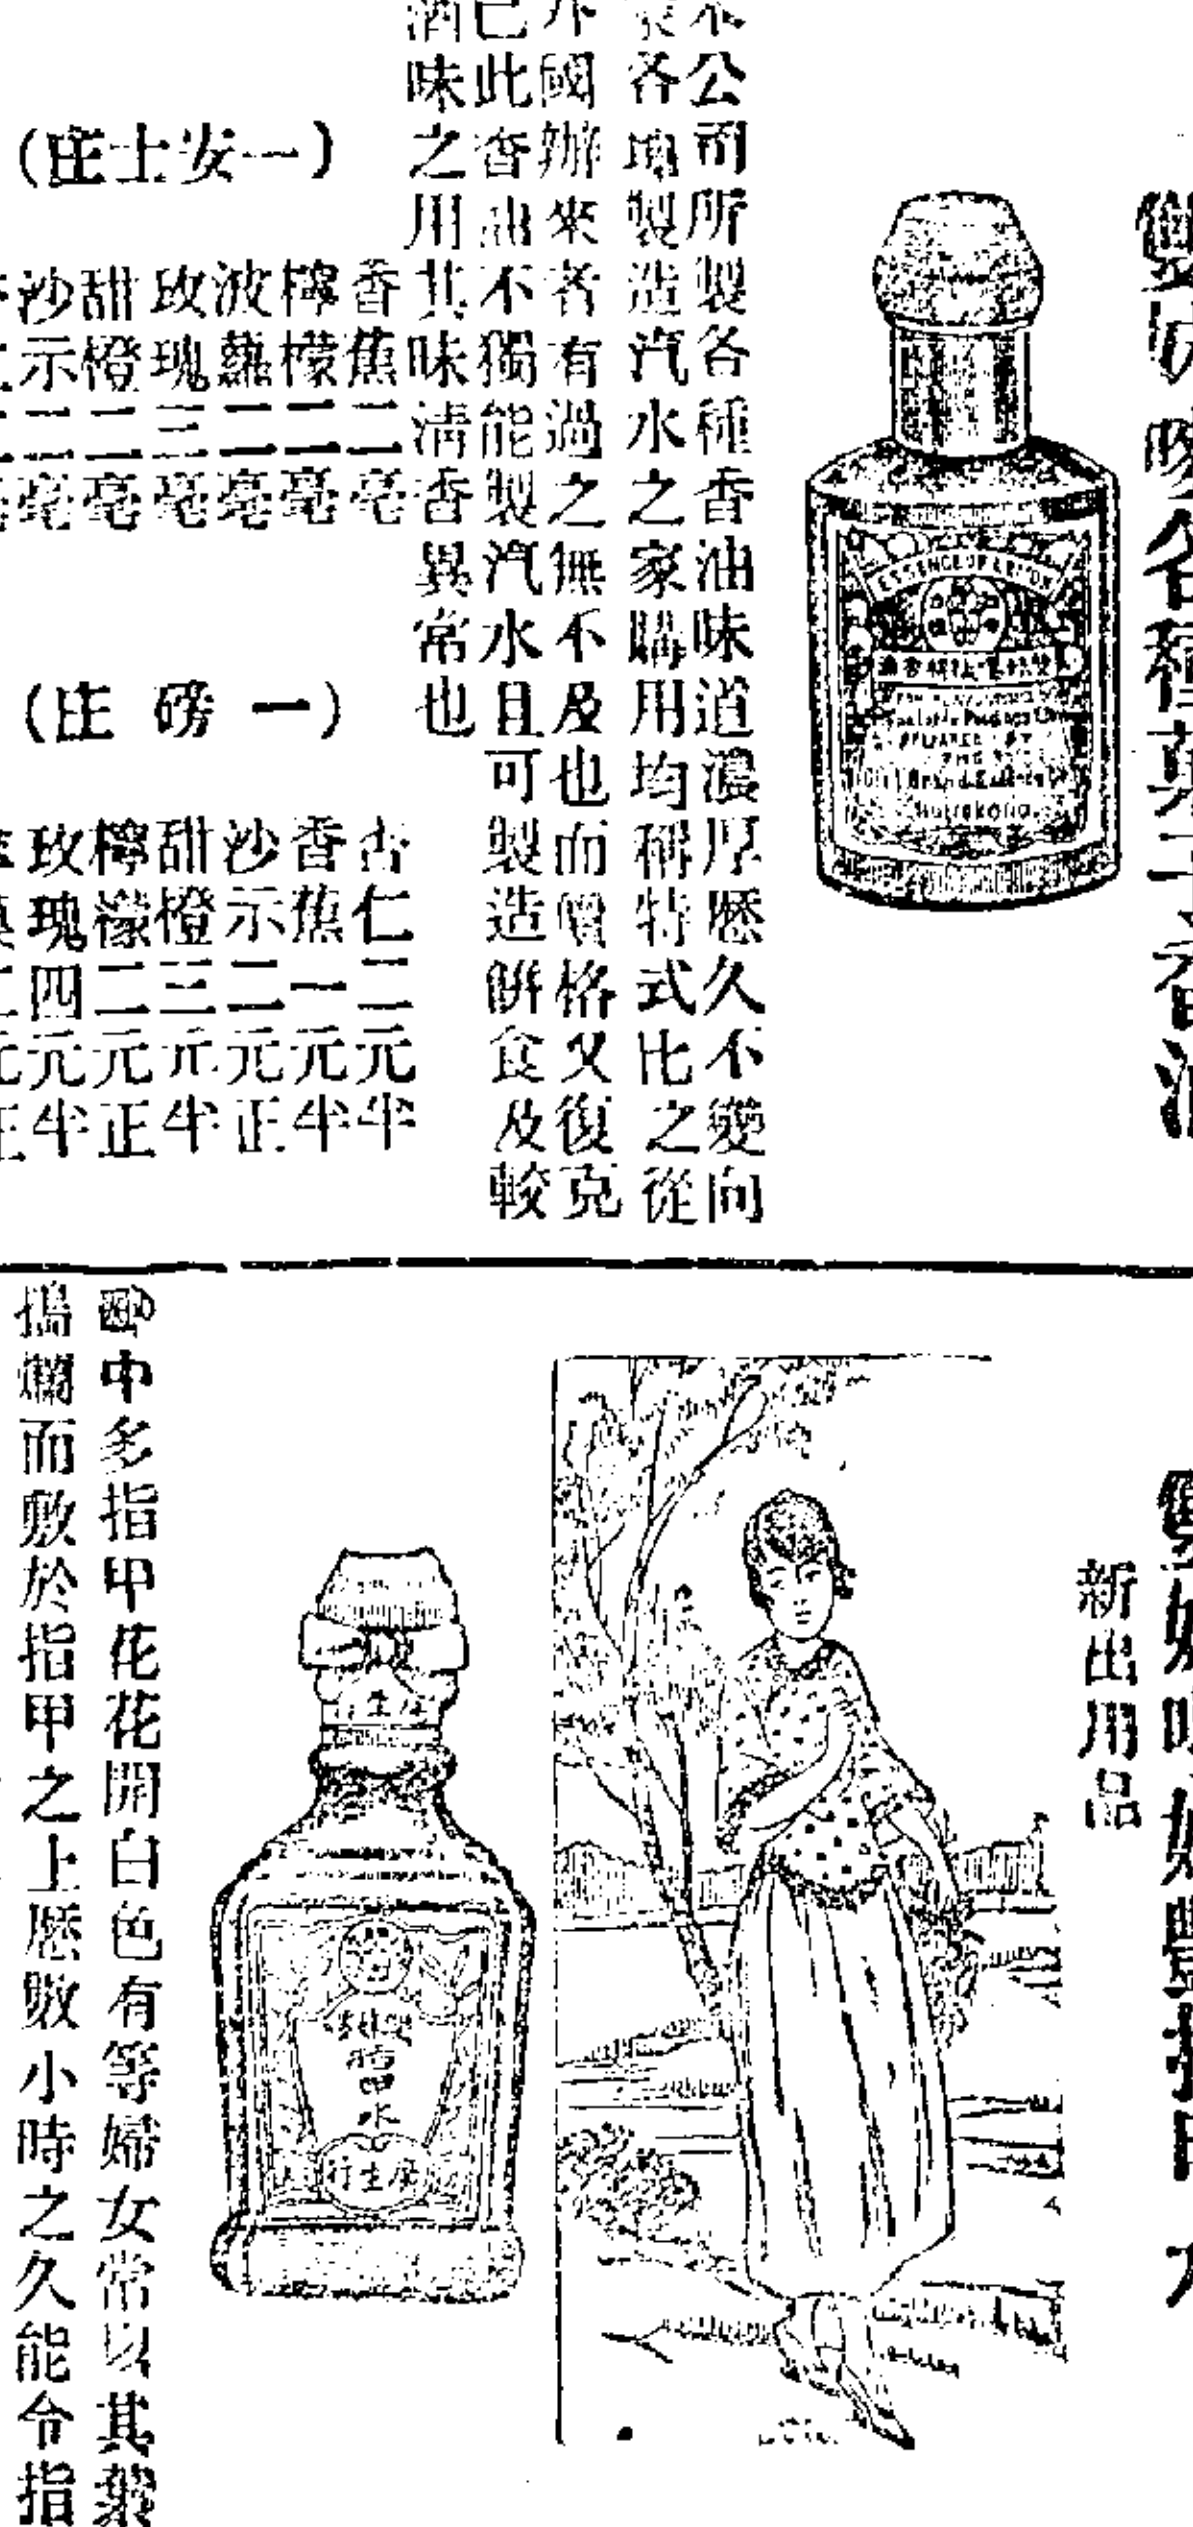 各種菓子香油
本公司所製各種香油味道濃厚歷久不變向
來各埠製造汽水之家購用均稱特式比之從
外國辦來者有過之無不及也而價格又復克
已此香油不獨能製汽水且可製造餅食及較
酒味之用其味清香異常也
(一安士庄)
香蕉二毫
檸檬二毫
波蘿二毫
玫瑰三毫
甜橙二毫
沙示二毫
(一磅庄)
杏仁二元半
香蕉一元半
沙示二元正
甜橙三元半
檸檬二元正
玫瑰四元半
ESSENCE OF LEMON
PREPARED BY
THE
Hongkong
新出用品
中多指甲花花開白色有等婦女常以其葉
搗爛而敷於指甲之上歷數小時之久能令指
指甲水
廣生行